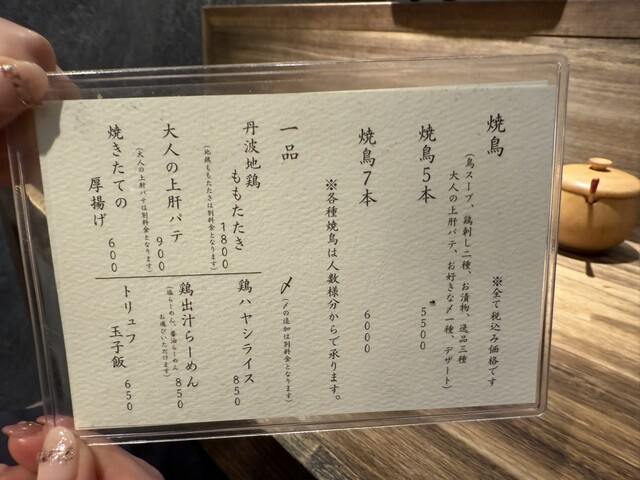 焼鳥
※全て税込み価格です
(鳥スープ、鶏刺し二種、お漬物、逸品三種
大人の上肝パテ、お好きな〆一種、デザート)
焼鳥5本 5500
焼鳥7本 6000
※各種焼鳥は人数様分からで承ります。
一品
丹波地鶏
ももたたき 1800
(地鶏ももたたきは別料金となります)
大人の上肝パテ 900
(大人の上肝パテは別料金となります)
焼きたての
厚揚げ 600
〆
(〆の追加は別料金となります)
鶏ハヤシライス 850
鶏出汁らーめん 850
(塩らーめん、醤油らーめん
お選びいただけます)
トリュフ
玉子飯 650